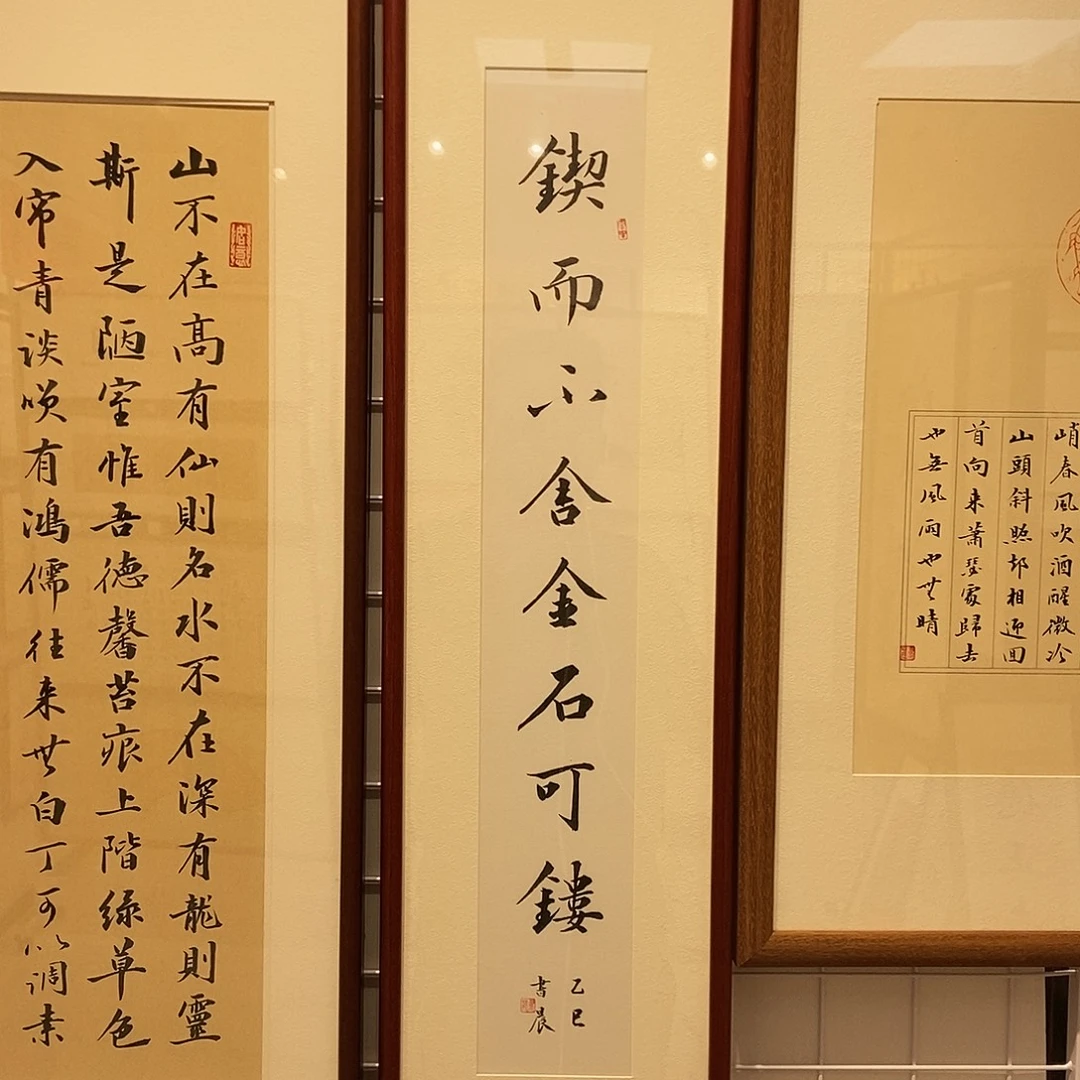 山不在髙有仙則名水不在深有龍則靈
斯是陋室惟吾德馨苔痕上階绿草色
入帘青谈咲有鴻儒往来無白丁可以调素
鍥而不舍金石可鏤
乙巳
書晨
峭春風吹酒醒微冷
山頭斜照却相迎回
首向来蕭瑟處歸去
也無風雨也無晴